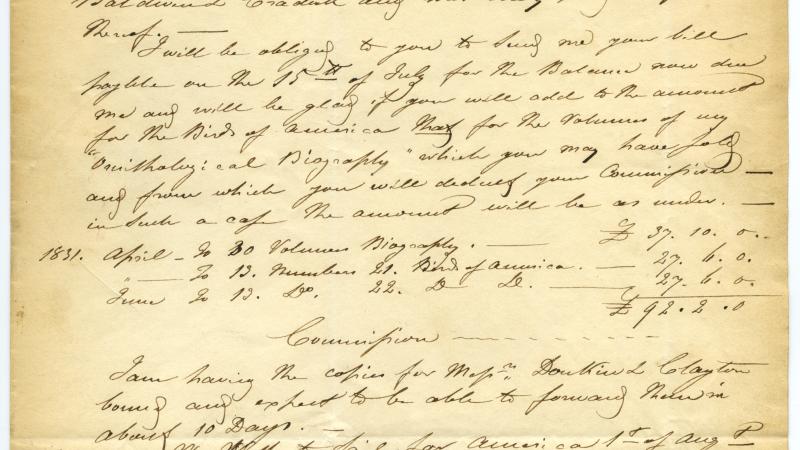 Baldwin & Cradock and
thereof. —
I will be obliged to you to send me your bill
payable on the 15th of July for the Balance now due
me and will be glad if you will add to the amount
for the Birds of America that for the Volumes of my
"Ornithological Biography" which you may have sold
and from which you will deduct your Commission —
in such a case the amount will be as under. —
£ 37. 10. 0.
1831. April — To 30 Volumes Biography. — 
" — To 13. Numbers 21. Birds of America. — 27. 6. 0.
June To 13. Do. 22. D— D. — 27. 6. 0.
£ 92. 2. 0
Commission
I am having the copies for Messrs. Donkin & Clayton
bound and expect to be able to forward them in
about 10 Days. —
for America 1st of Augt